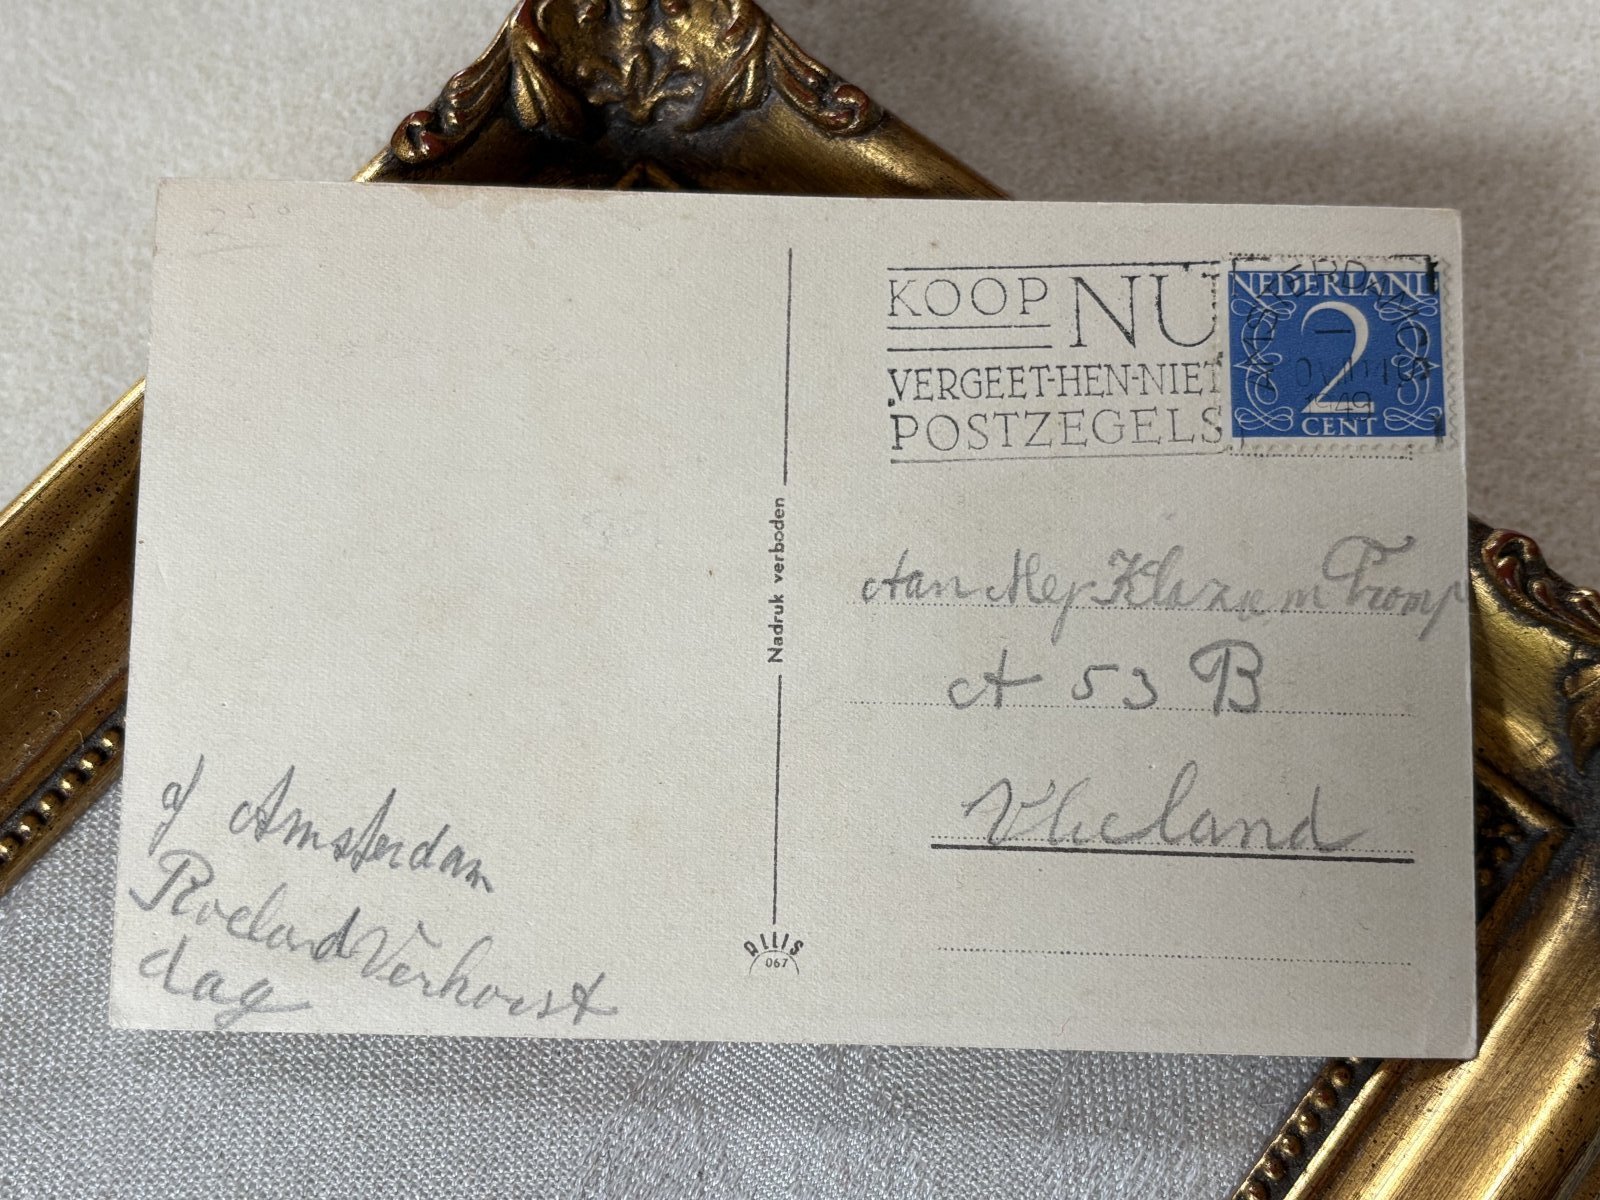 250
KOOP NU
VERGEET-HEN-NIET
POSTZEGELS
NEDERLAND
2
CENT
AMSTERDAM
1949
Nadruk verboden
Aan Mej Tromp
A 53 B
Vlieland
Amsterdam
Roeland Verhorst
dag
ALLIS
067